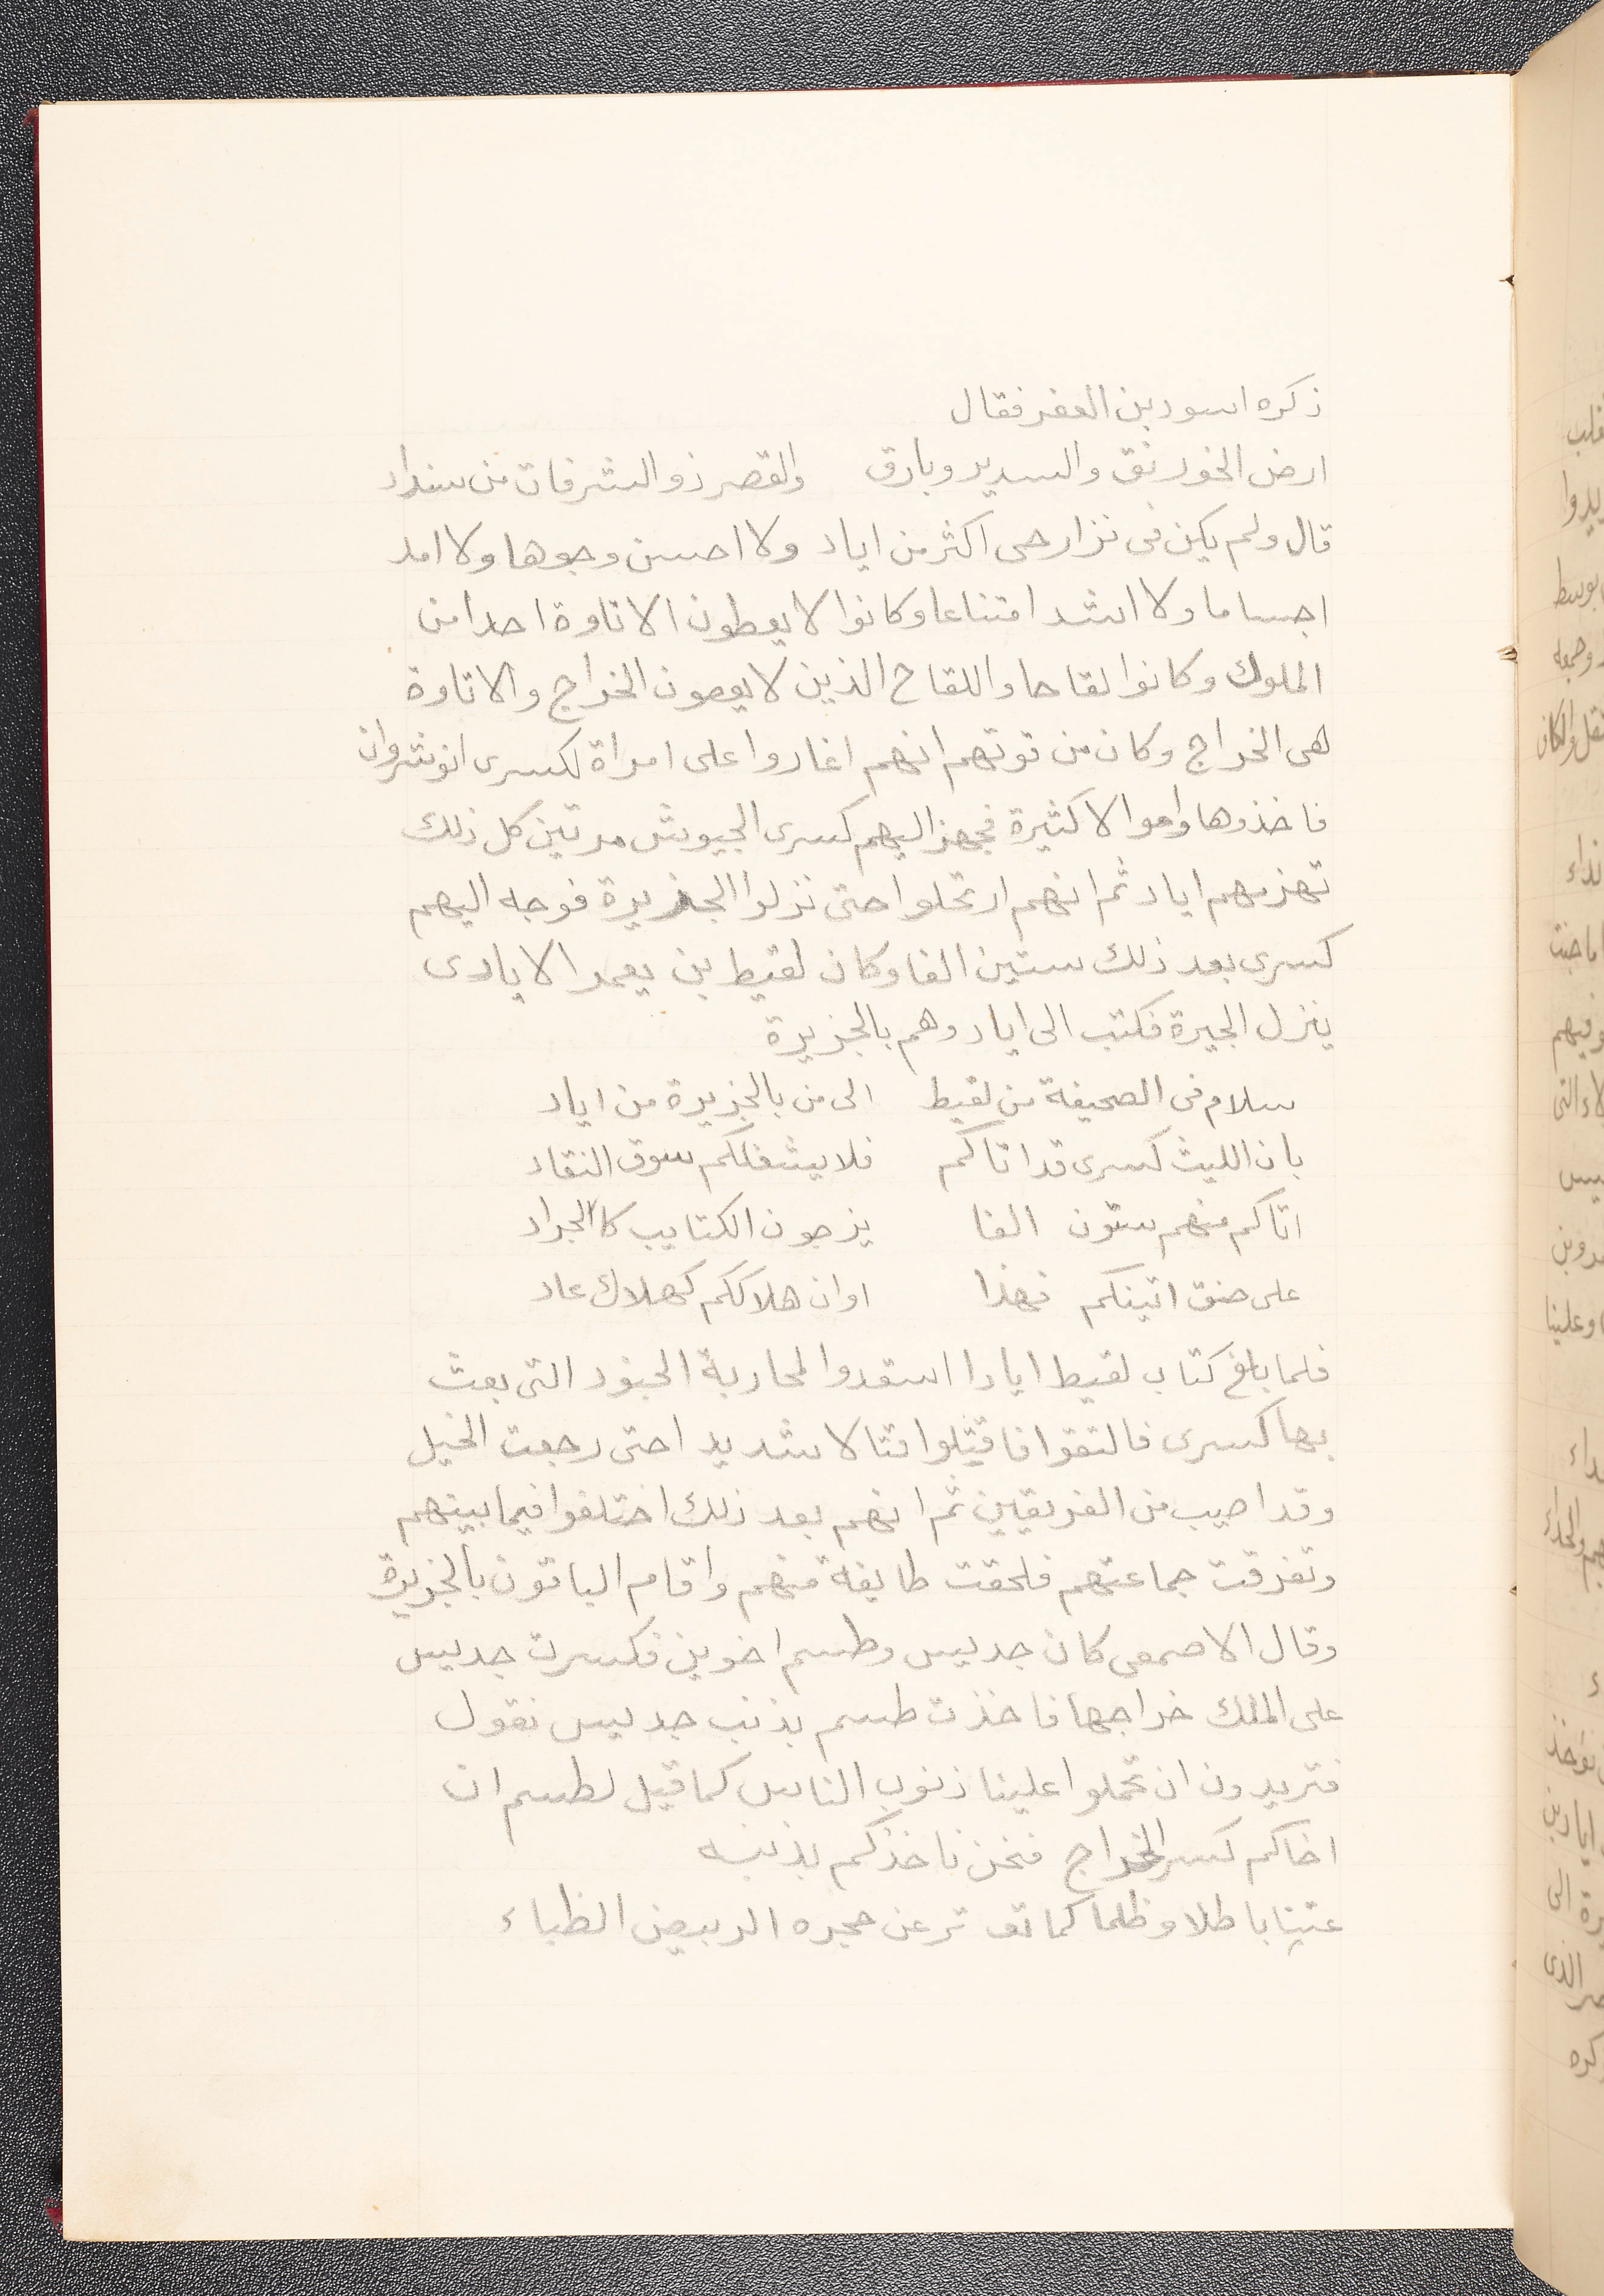 ذكره اسود بن العفر فقال
ارض الخورنق والسدير وبارق والقصر ذو الشرفات من سنداد
قال ولم يكن فى نزار حى اكثر من اياد ولا احسن وجوها ولا امد
اجساما ولا اشد امتناعا وكانوا لا يعطون الاتاوة احدا من
الملوك وكانوا لقاحا واللقاح الذين لا يعصون الخراج والاتاوة
هى الخراج وكان من قوتهم انهم اغاروا على امراة لكسرى انوشروان
فاخذوها واموالا كثيرة فجهز اليهم كسرى الجيوش مرتين كل ذلك
تهزمهم اياد ثم انهم ارتحلوا حتى نزلوا الجزيرة فوجه اليهم
كسرى بعد ذلك ستين الفا وكان لقيط بن يعمر الايادى
ينزل الجيرة فكتب الى اياد وهم بالجزيرة
سلام فى الصحيفة من لقيط الى من بالجزيرة من اياد
بان الليث كسرى قد اتاكم فلا يشغلكم سوق النقاد
اتاكم منهم ستون الفا يزجون الكتايب كالجراد
على حنق اتينكم فهذا اوان هلاككم كهلاك عاد
فلما بلغ كتاب لقيط ايادا استعدوا لمحاربة الجنود التى بعث
بها كسرى فالتقوا فاقتتلوا قتالا شديدا حتى رجعت الخيل
وقد اصيب من الفريقين ثم انهم بعد ذلك اختلفوا فيما بينهم
وتفرقت جماعتهم فلحقت طايفة منهم واقام الباقون بالجزيرة
وقال الاصمعى كان جديس وطسم اخوين فكسرت جديس
على الملك خراجها فاخذت طسم بذنب جديس نقول
فتريدون ان تحملوا علينا ذنوب الناس كما قيل لطسم ان
اخاكم كسر الخراج فنحن ناخذكم بذنبه
عتبنا باطلا وظلما كما تعـ ـتر عن حجره الربيض الظباء